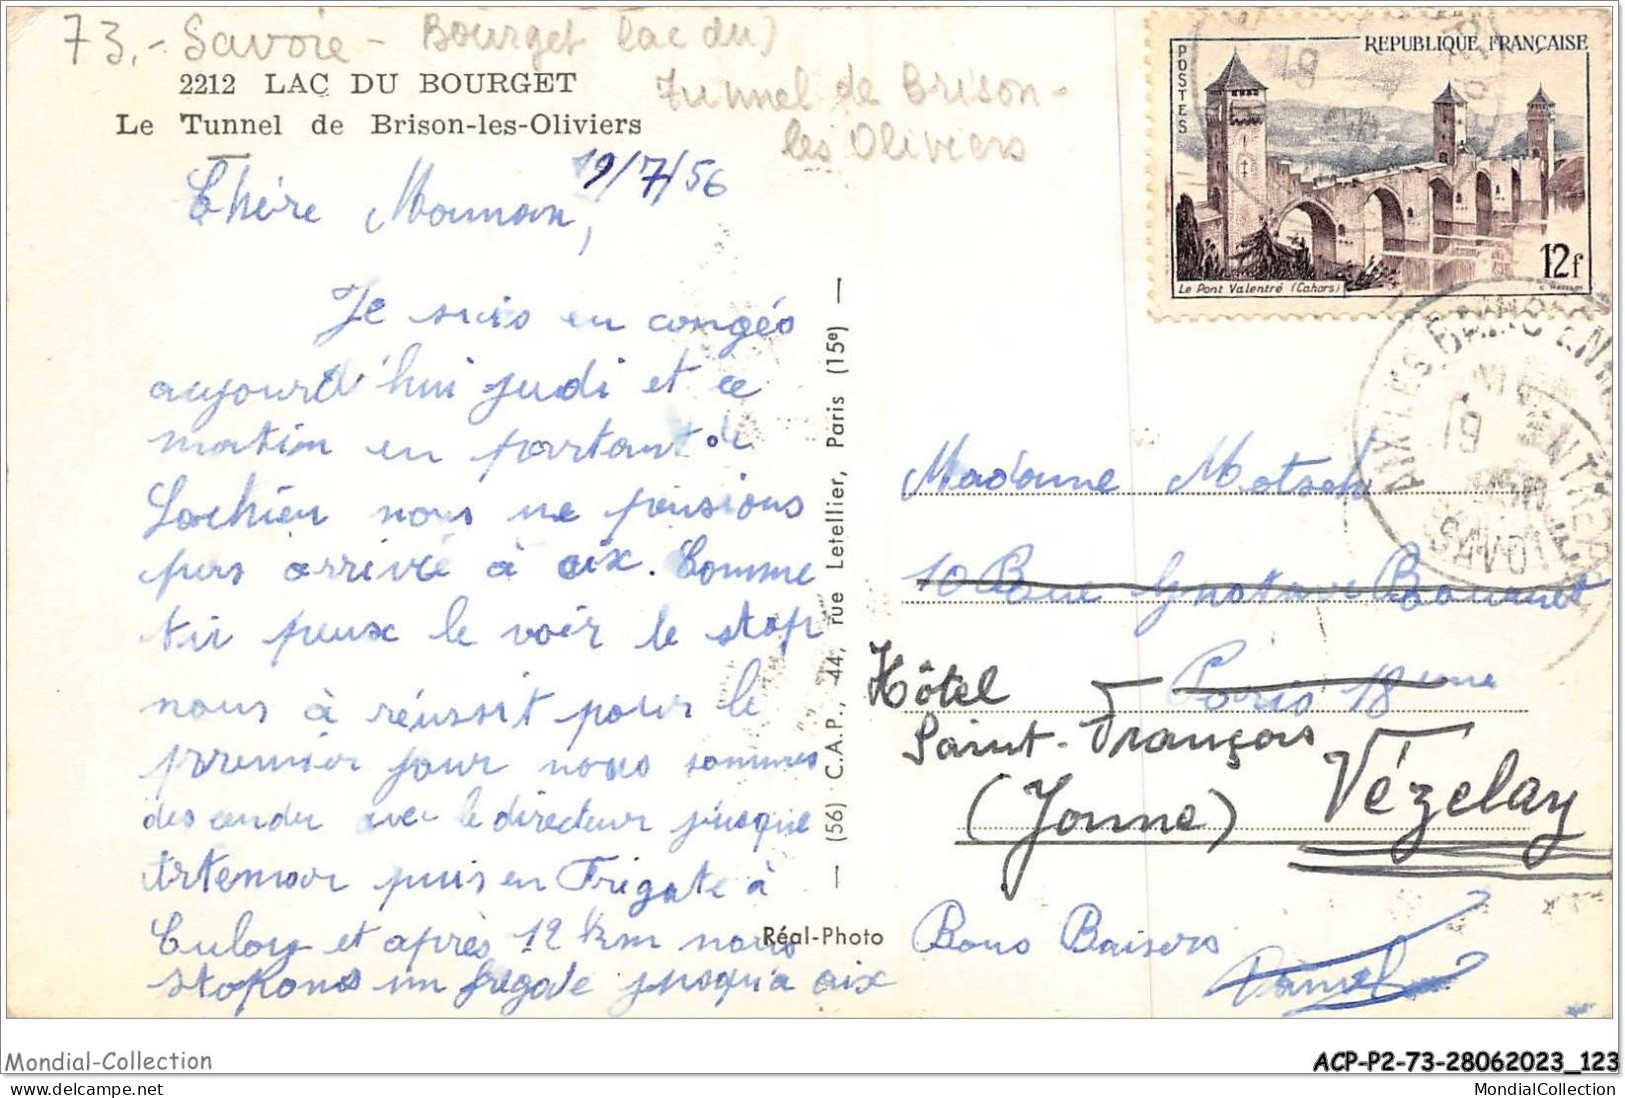 73.- Savoie - Bourget (lac du)
2212 LAC DU BOURGET
Tunnel de Brison-
Le Tunnel de Brison-les-Oliviers
les Oliviers
19/7/56
Chère Maman,
Je suis en congés
aujourd'hui jeudi et ce
matin en partant de
Lochieu nous ne pensions
pas arrivé à aix. Comme
tu peux le voir le stop
nous à réussit pour le
premier jour nous sommes
descendu avec le directeur jusque
Artemare puis en Frigate à
Culoz et après 12 km nous
stopons un fregate jusqu'a aix
— (56) C.A.P., 44, rue Letellier, Paris (15e) —
Réal-Photo
POSTES
REPUBLIQUE FRANÇAISE
Le Pont Valentré (Cahors)
12f
AIX-LES-BAINS
19
SAVOIE
Madame Motsch
10 Rue
Paris 18eme
Hôtel
Saint-François
Vézelay
(Yonne)
Bons Baisers
Daniel
Mondial-Collection
ACP-P2-73-28062023_123
Mondial-Collection.com
MondialCollection